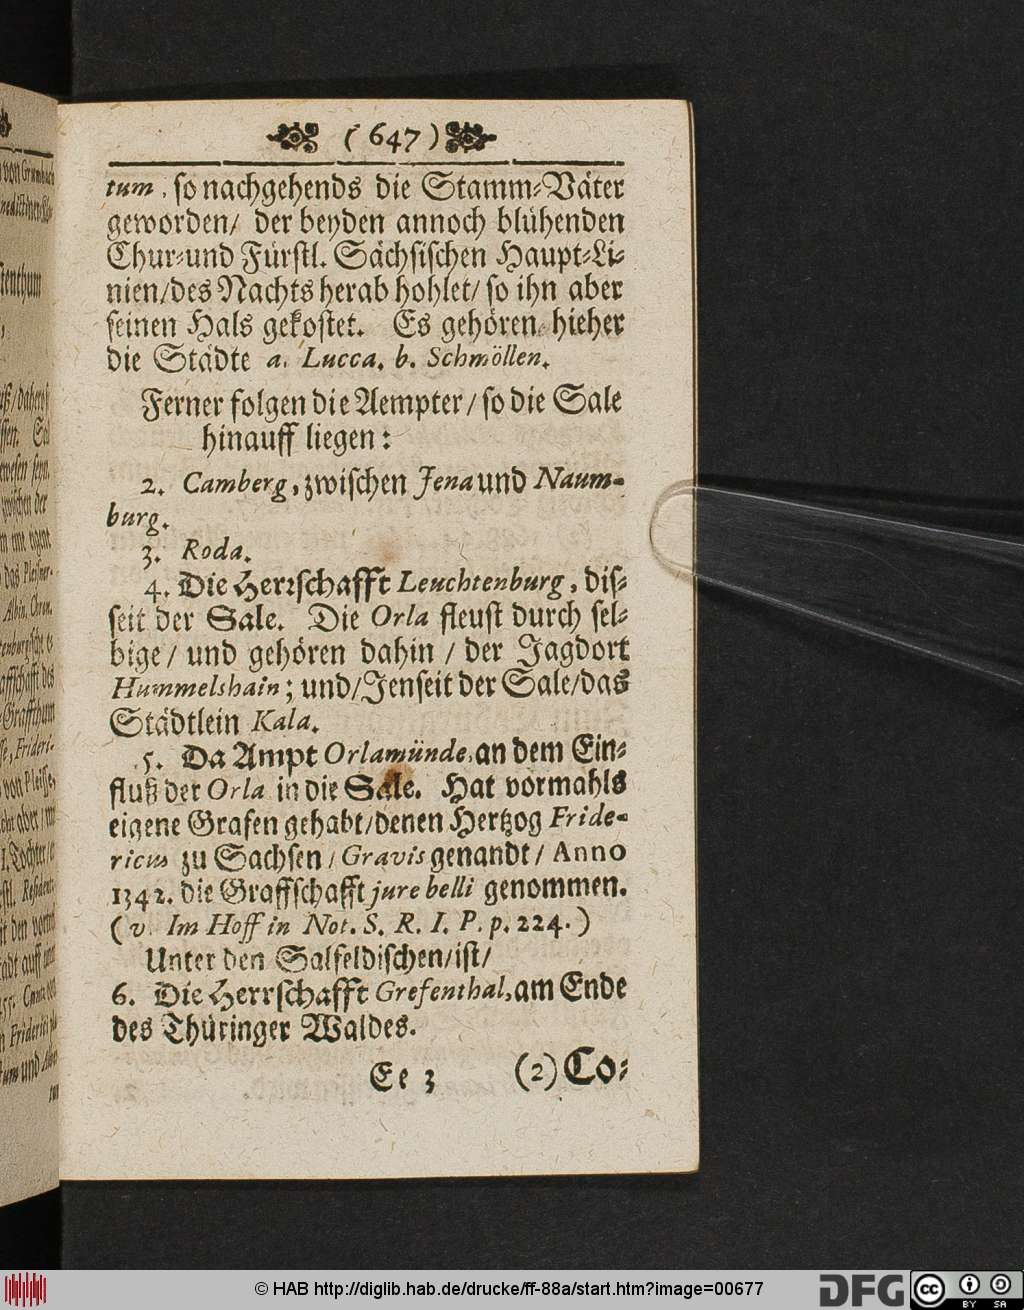 ( 647 )
tum, so nachgehends die Stamm-Väter
geworden/ der beyden annoch blühenden
Chur-und Fürstl. Sächsischen Haupt-Li-
nien/des Nachts herab hohlet/ so ihn aber
seinen Hals gekostet. Es gehören hieher
die Städte a. Lucca. b. Schmöllen.
Ferner folgen die Aempter/ so die Sale
hinauff liegen:
2. Camberg, zwischen Jena und Naum-
burg.
3. Roda.
4. Die Herrschafft Leuchtenburg, dis-
seit der Sale. Die Orla fleust durch sel-
bige/ und gehören dahin/ der Jagdort
Hummelshain; und/Jenseit der Sale/das
Städtlein Kala.
5. Da Ampt Orlamünde, an dem Ein-
fluß der Orla in die Sale. Hat vormahls
eigene Grafen gehabt/denen Hertzog Fride-
ricus zu Sachsen/ Gravis genandt/ Anno
1342. die Graffschafft jure belli genommen.
(v. Im Hoff in Not. S. R. I. P. p. 224.)
Unter den Salfeldischen/ist/
6. Die Herrschafft Grefenthal, am Ende
des Thüringer Waldes.
Ee 3 (2) Co-
von Grumbach
stenthum
/daher
ffen.
wesen seyn.
zwischen der
das Pleißner-
Albin. Chron.
Frideri-
von Pleisse,
Tochter/
Friderici
und
© HAB http://diglib.hab.de/drucke/ff-88a/start.htm?image=00677
DFG
cc
BY SA